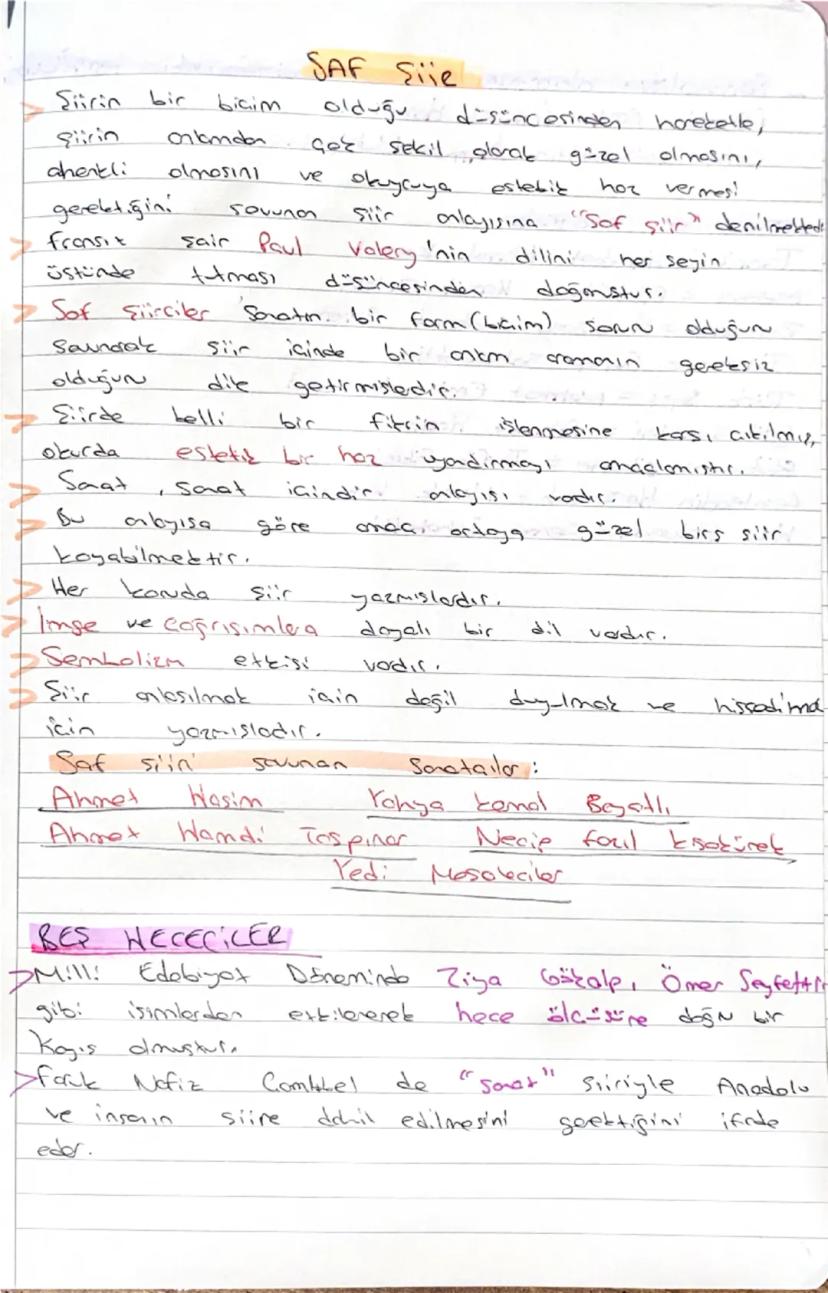 SAF ŞİİR
> Şiirin bir biçim olduğu düşüncesinden hareketle,
şiirin anlamdan çok şekil olarak güzel olmasını,
ahenkli olmasını ve okuyucuya estetik haz vermesi
gerektiğini savunan şiir anlayışına "Saf şiir" denilmektedir
> fransız şair Paul Valery'nin dilini her şeyin
üstünde tutması düşüncesinden doğmuştur.
> Saf Şiirciler Sanatın bir form (biçim) sorunu olduğun
savunarak şiir içinde bir anlam aramanın gereksiz
olduğunu dile getirmişlerdir.
> Şiirde belli bir fikrin işlenmesine karşı çıkılmış,
okurda estetik bir haz uyandırmayı amaçlamıştır.
> Sanat, sanat içindir anlayışı vardır.
> Bu anlayışa göre amaç ortaya güzel birş şiir
koyabilmektir.
> Her konuda şiir yazmışlardır.
> İmge ve çağrışımlara dayalı bir dil vardır.
> Sembolizm etkisi vardır.
> Şiir anlaşılmak için değil duyulmak ve hissedilmek
için yazmışladır.
Saf şiiri savunan Sanatçılar:
Ahmet Haşim Yahya kemal Beyatlı
Ahmet Hamdi Taspınar Necip fazıl kısakürek
Yedi Meşaleciler
BEŞ HECECİLER
> Milli Edebiyat Döneminde Ziya Gökalp, Ömer Seyfettin
gibi isimlerden etkilenerek hece ölçüsüne doğru bir
kayış olmuştur.
> faruk Nafiz Çamlıbel de "sanat" şiiriyle Anadolu
ve insanın şiire dahil edilmesini gerektiğini ifade
eder.